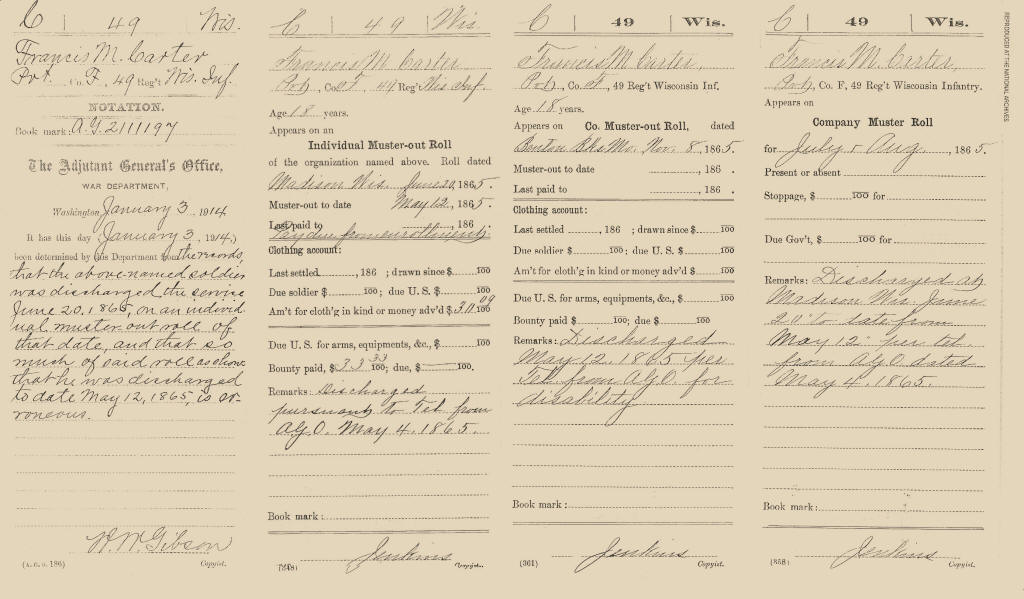 C | 49 | Wis.
Francis M. Carter
Pvt., Co. F, 49 Reg't Wis. Inf.
NOTATION.
Book mark: A.G. 2111197
The Adjutant General's Office,
WAR DEPARTMENT,
Washington, January 3, 1914
It has this day (January 3, 1914,)
been determined by this Department from the records,
that the above-named soldier
was discharged the service
June 20, 1865, on an individ-
ual muster out roll of
that date, and that so
much of said roll as shows
that he was discharged
to date May 12, 1865, is er-
roneous.
H. W. Gibson
(A. G. O. 186) Copyist.
C | 49 | Wis.
Francis M. Carter
Pvt, Co. F, 49 Reg't Wis Inf.
Age 18 years.
Appears on an
Individual Muster-out Roll
of the organization named above. Roll dated
Madison Wis. June 20, 1865.
Muster-out to date May 12, 1865.
Last paid to , 186 .
Pay due from enrollment
Clothing account:
Last settled , 186 ; drawn since $ 100
Due soldier $ 100; due U. S. $ 100
Am't for cloth'g in kind or money adv'd $ 30 09 100
Due U. S. for arms, equipments, &c., $ 100
Bounty paid, $ 33 33 100; due, $ 100.
Remarks: Discharged
pursuant to Tel from
A.G.O. May 4. 1865.
Book mark:
Jenkins
Copyist.
C | 49 | Wis.
Francis M. Carter,
Pvt, Co. F, 49 Reg't Wisconsin Inf.
Age 18 years.
Appears on Co. Muster-out Roll, dated
Benton Bks Mo. Nov. 8, 1865.
Muster-out to date , 186 .
Last paid to , 186 .
Clothing account:
Last settled , 186 ; drawn since $ 100
Due soldier $ 100; due U. S. $ 100
Am't for cloth'g in kind or money adv'd $ 100
Due U. S. for arms, equipments, &c., $ 100
Bounty paid $ 100; due $ 100
Remarks: Discharged
May 12. 1865 per
Tel. from A.G.O. for
disability
Book mark:
Jenkins
(361) Copyist.
C | 49 | Wis.
Francis M. Carter,
Pvt, Co. F, 49 Reg't Wisconsin Infantry.
Appears on
Company Muster Roll
for July & Aug., 1865.
Present or absent
Stoppage, $ 100 for
Due Gov't, $ 100 for
Remarks: Discharged at
Madison Wis. June
20" to date from
May 12" per tel.
from A.G.O. dated
May 4. 1865.
Book mark:
Jenkins
(358) Copyist.
REPRODUCED AT THE NATIONAL ARCHIVES